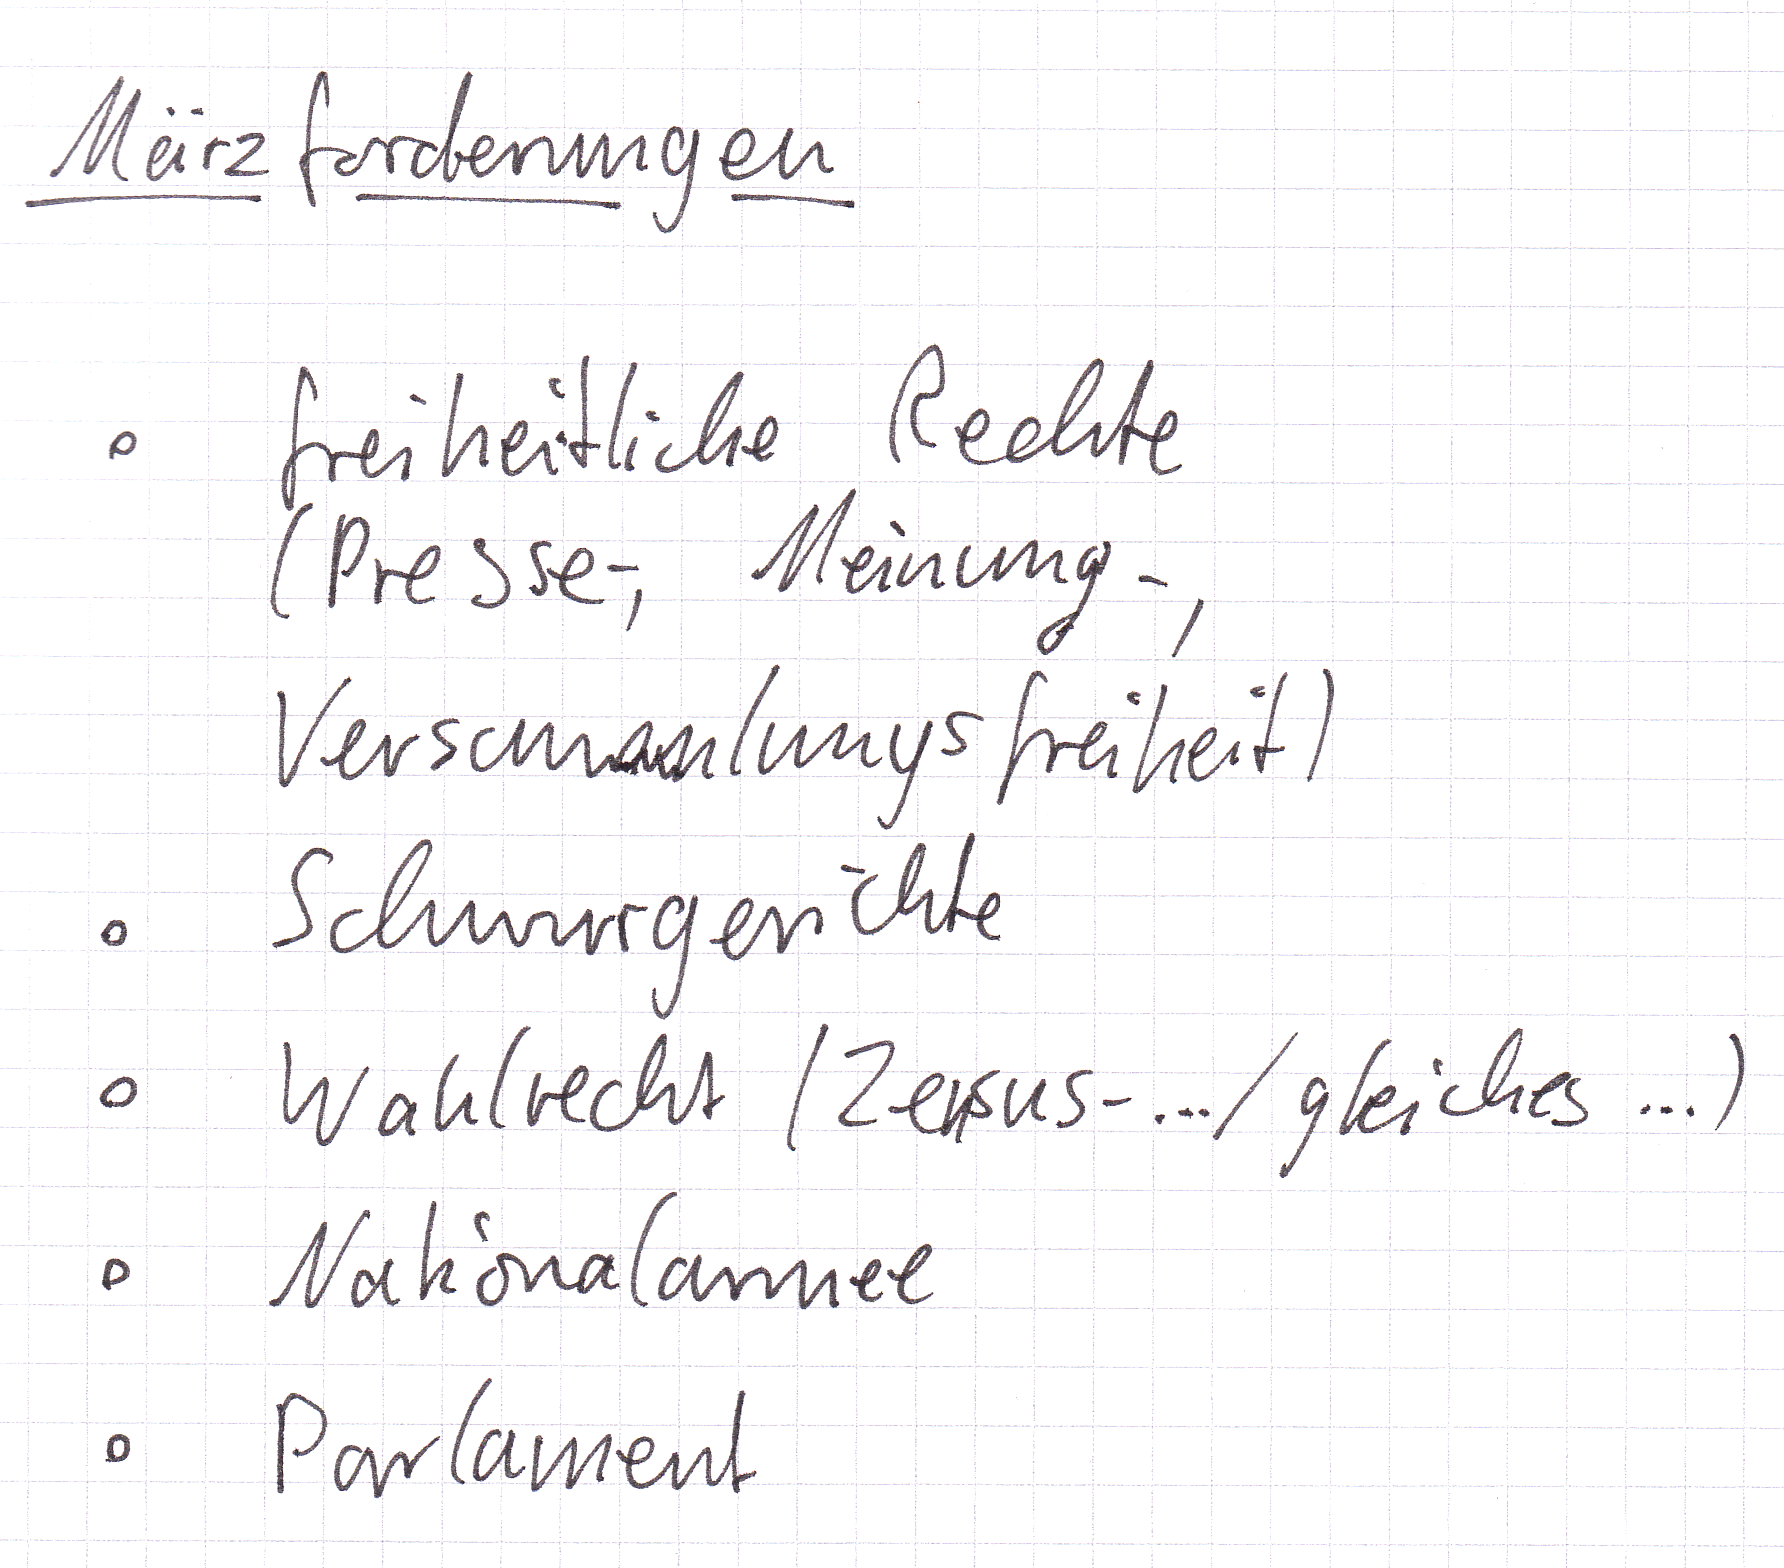 Märzforderungen
° freiheitliche Rechte
(Presse-, Meinung-,
Versammlungsfreiheit)
° Schwurgerichte
° Wahlrecht (Zensus-.../gleiches ...)
° Nationalarmee
° Parlament